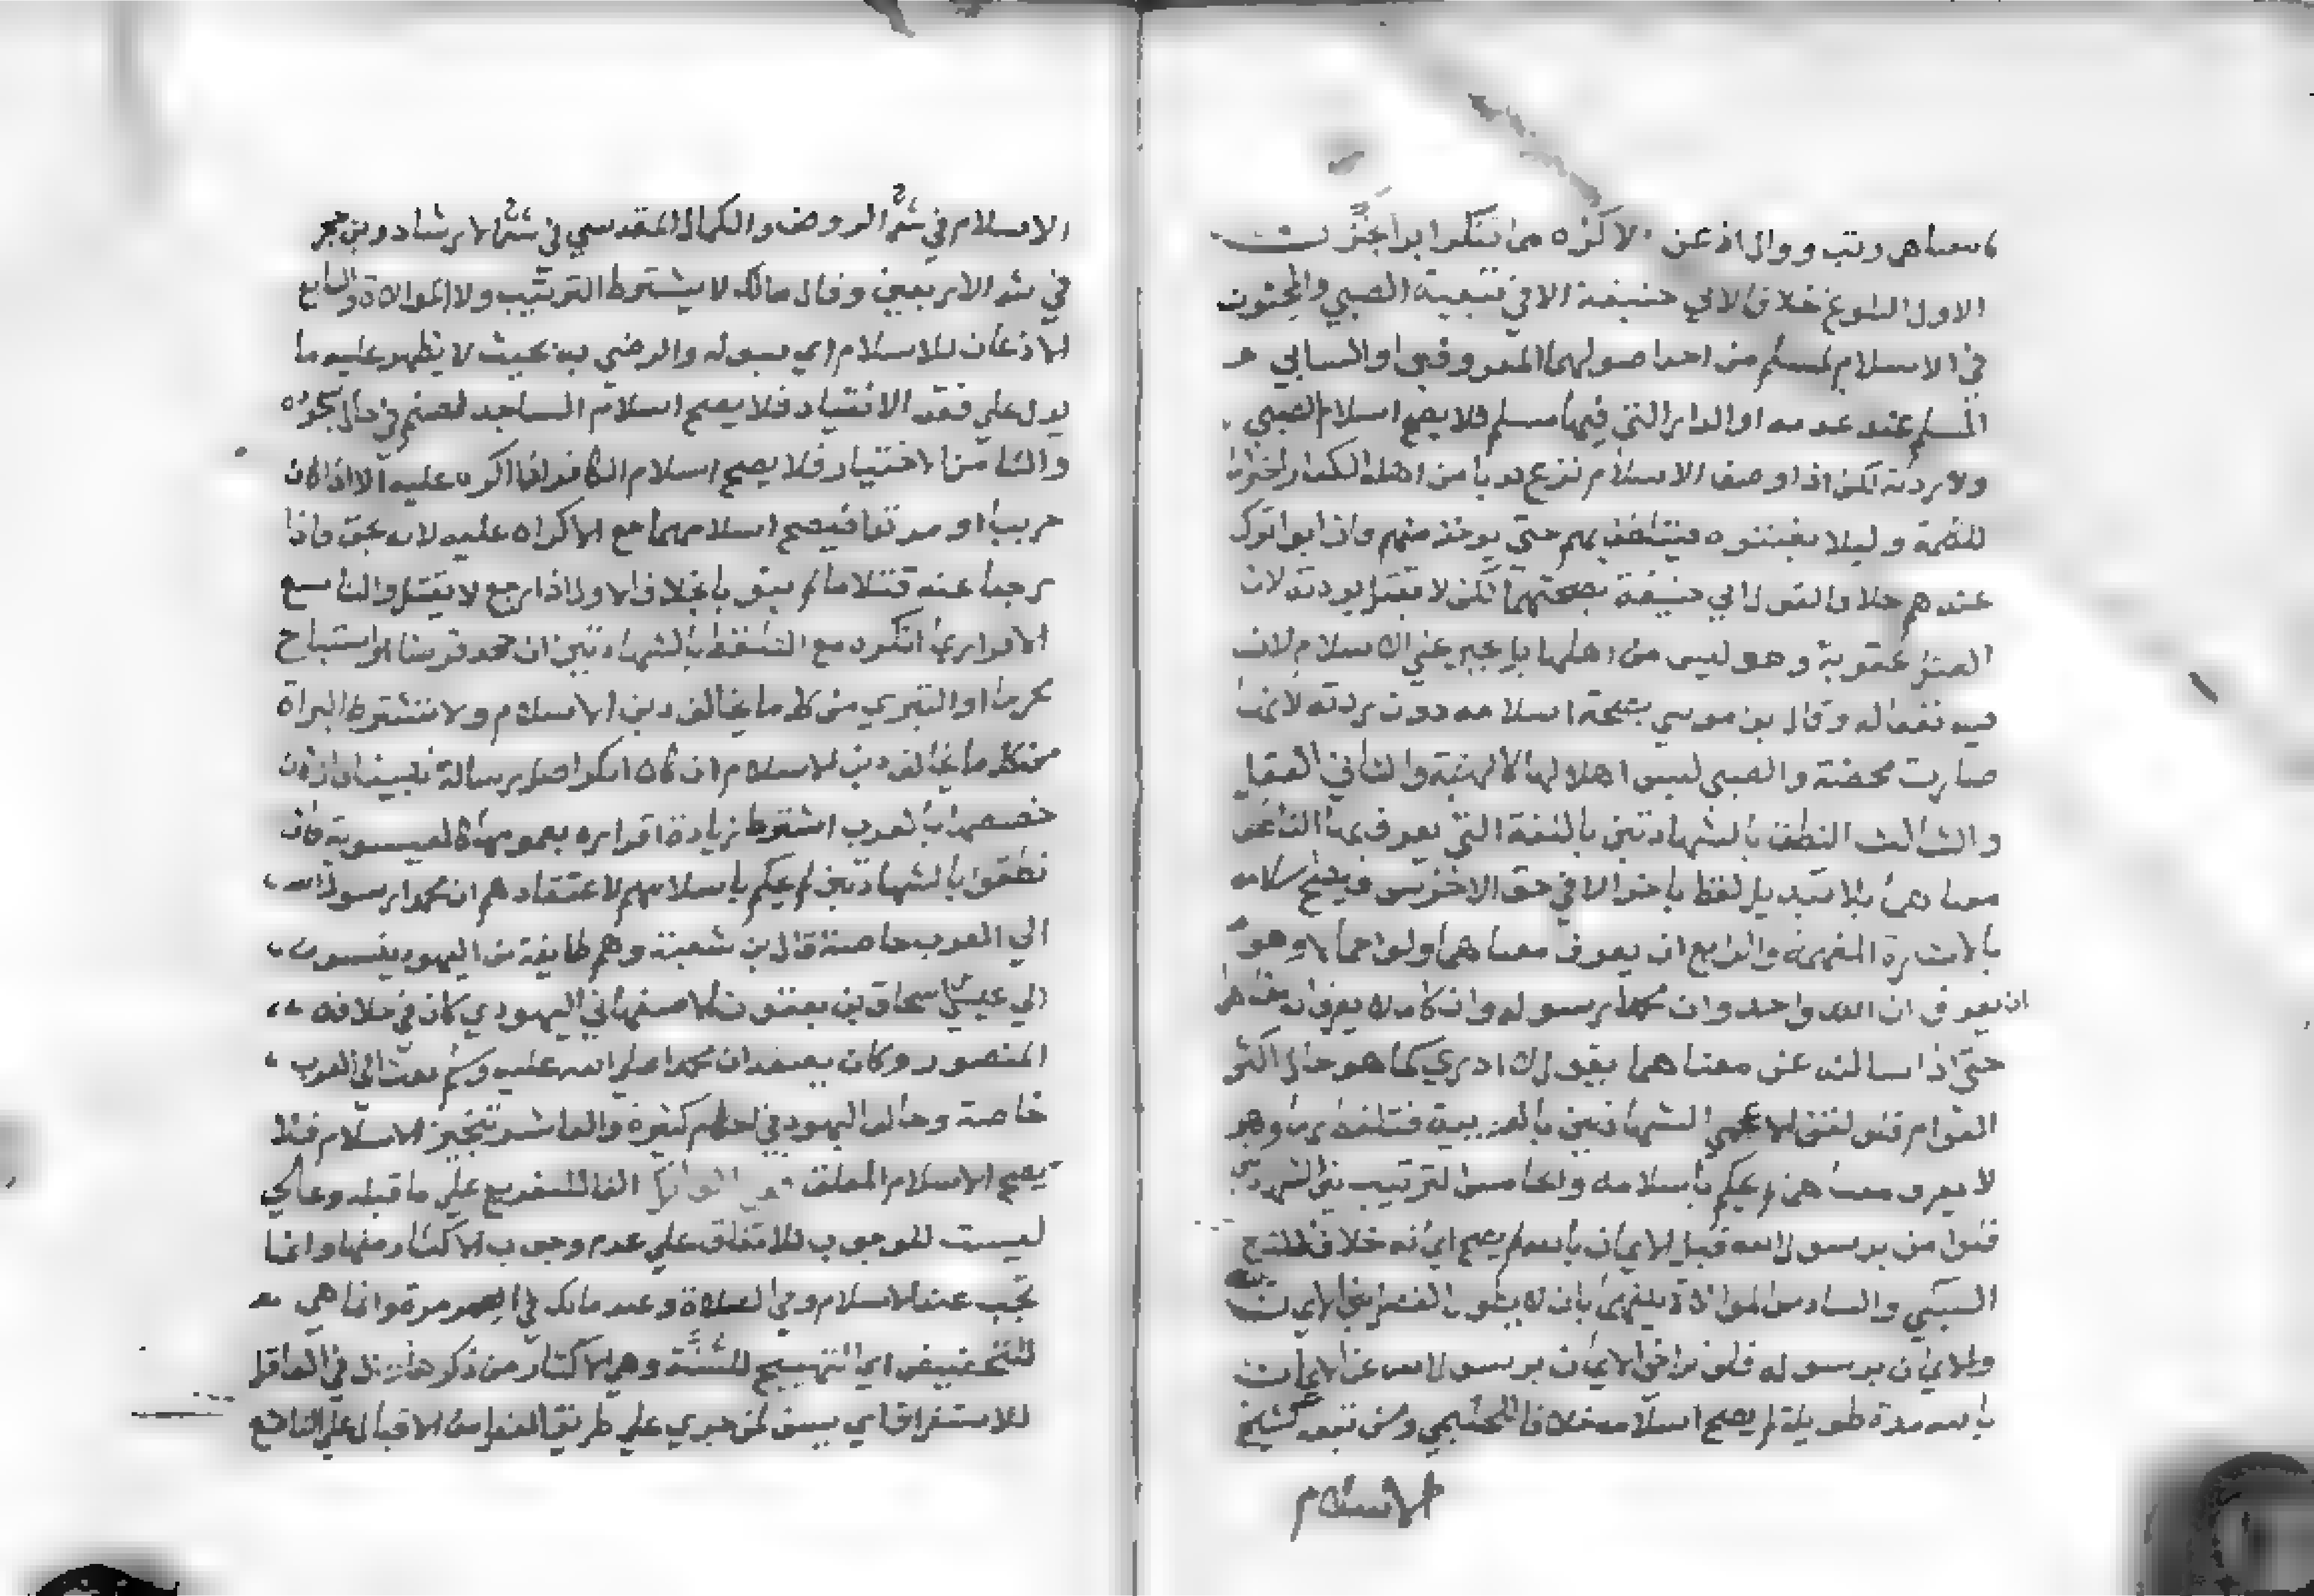 معناهم رتب ووال اذعن ولا كره
الاول البلوغ خلافا لابي حنيفة الا في تبعية الصبي والمجنون
في الاسلام لمسلم من احد اصولهما المعروفين او السابي
المسلم عند عدمه او الدار التي فيها مسلم فلا يصح اسلام الصبي
ولا ردته لكن اذا وصف الاسلام نزع ندبا من اهله الكفار احتراما
للكلمة وليلا يفتنوه فيتلطف بهم حتى يوخذ منهم فاذا ابوا ترك
عندهم خلافا لقول ابي حنيفة بصحتهما لكن لا يقتل بردته لان
القتل عقوبة وهو ليس من اهلها بل يجبر علي الاسلام لان
فيه نفعا له وقال بن موسي بصحة اسلامه دون ردته لانها
صارت محضة والصبي ليس اهلا لها كالهبة والثاني العقل
والثالث النطق بالشهادتين باللغة التي يعرف بها الناطق
معناهما بلا تبديل لفظ باخر الا في حق الاخرس فيصح اسلامه
بالاشارة المفهمة والرابع ان يعرف معناهما ولو اجمالا وهو
ان يعرف ان الله واحد وان محمدا رسوله وان كان لا يعرف معناهما
حتى اذا سالته عن معناهما يقول لا ادري كما هو حال اكثر
العوام فلو لقن الاعجمي الشهادتين بالعربية فتلفظ بها وهو
لا يعرف معناهما لم يحكم باسلامه والخامس الترتيب بين الشهادتين
فلو امن برسول الله قبل الايمان بالله لم يصح ايمانه خلافا للتاج
السبكي والسادس الموالاة بينهما بان لا يطول الفصل بين الايمان
والايمان برسوله فلو تراخى الايمان برسول الله عن الايمان
بالله مدة طويلة لم يصح اسلامه خلافا للحليمي ومن تبعه كشيخ
الاسلام
الاسلام في شرح الروض والكمال المقدسي في شرح الارشاد وبن حجر
في شرح الاربعين وقال مالك لا يشترط الترتيب ولا الموالاة والسابع
الاذعان للاسلام اي قبوله والرضي به بحيث لا يظهر عليه ما
يدل علي فقد الانقياد فلا يصح اسلام الساجد لصنم في حال سجوده
والثامن الاختيار فلا يصح اسلام الكافر اذا اكره عليه الا اذا كان
حربيا او مرتدا فيصح اسلامهما مع الاكراه عليه لانه بحق فاذا
رجعا عنه قتلا ما لم يتوبا بخلاف الاول اذا رجع لا يقتل والتاسع
الاقرار بما انكره مع التلفظ بالشهادتين ان جحد فرضا او استباح
محرما او التبري من كل ما يخالف دين الاسلام ولا تشترط البراة
من كل ما يخالف دين الاسلام ان كان انكر اصل رسالة نبينا فان
خصصها بالعرب اشترط زيادة اقراره بعمومها كالعيسوية فان
نطقوا بالشهادتين لم يحكم باسلامهم لاعتقادهم ان محمدا رسول الله
الي العرب خاصة قال بن شعبة وهم طايفة من اليهود ينسبون
الي عيسى اسحاق بن يعقوب الاصفهاني اليهودي كان في خلافة
المنصور وكان يعتقد ان محمدا صلي الله عليه وسلم بعث الي العرب
خاصة وخالف اليهود في احكام كثيرة والعاشر تنجيز الاسلام فلا
يصح الاسلام المعلق الفا للتفريع علي ما قبله وعالج
ليست للوجوب للاتفاق علي عدم وجوب الاكثار منها وانما
تجب عند الاسلام وفي الصلاة وعند مالك في العمر مرة وانما هي
للتحضيض اي التهييج للسنة وهي الاكثار من ذكرها في العاقل
للاستغراق اي يسن لمن جري علي طريق العقل من الاقبال علي النافع